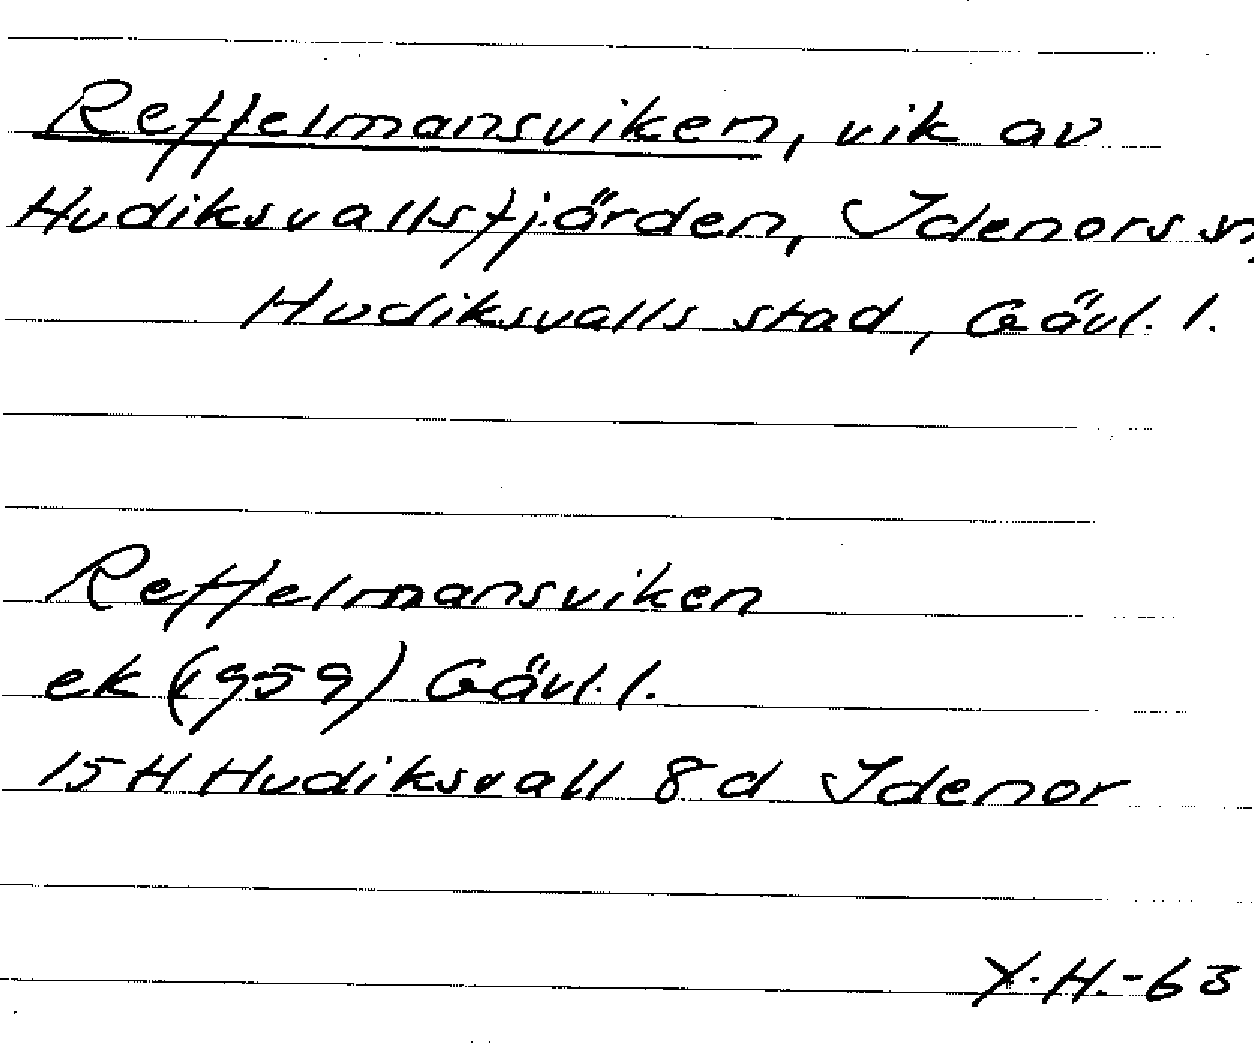 Reffelmansviken, vik av
Hudiksvallsfjärden, Idenors sn,
Hudiksvalls stad, Gävl. l.
Reffelmansviken
ek (1959) Gävl. l.
15 H Hudiksvall 8 d Idenor
Y.H.-63